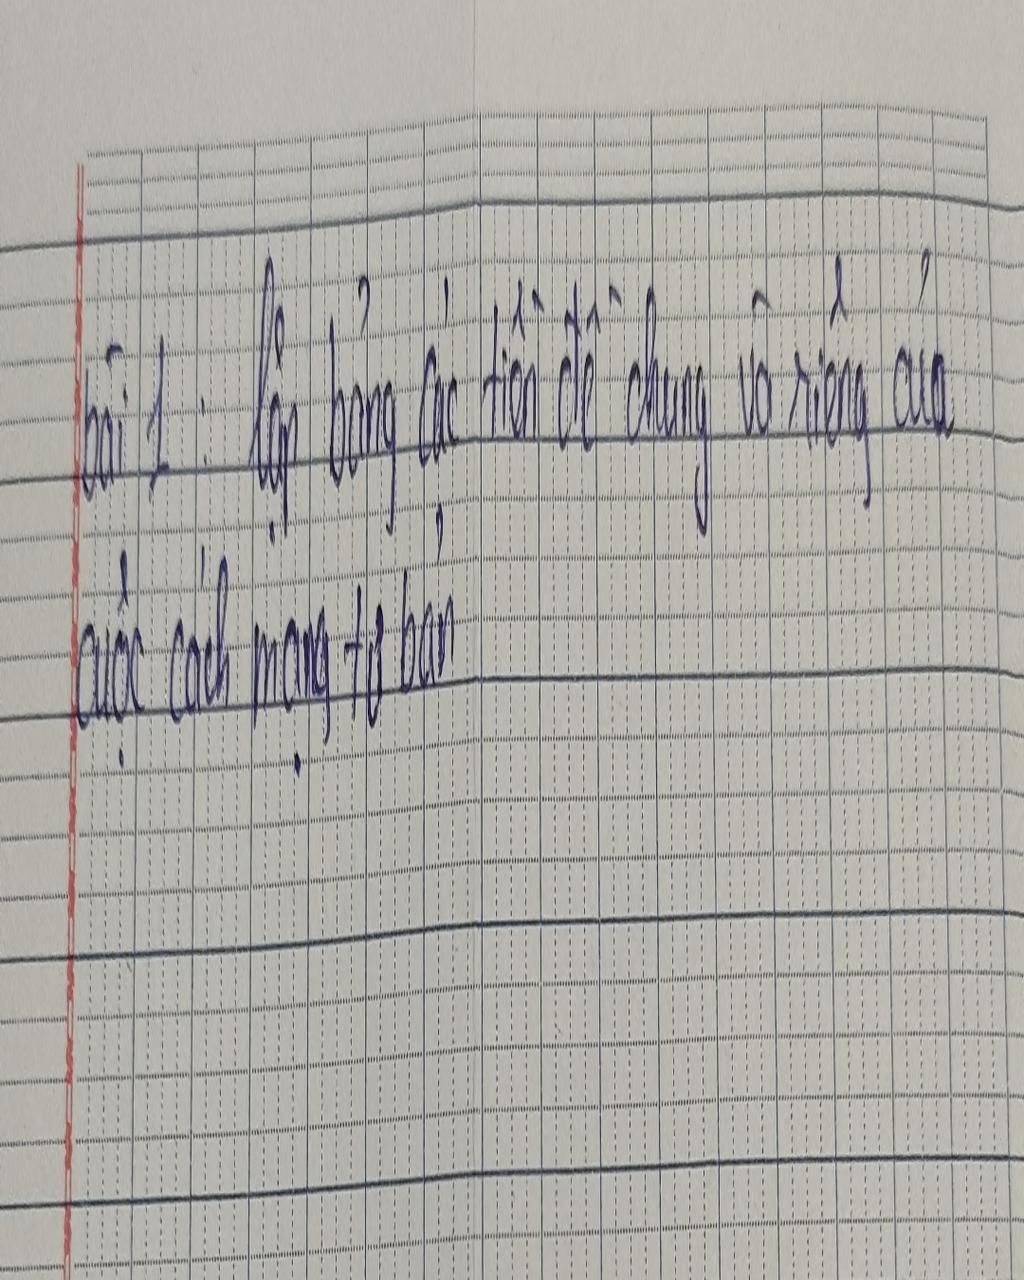 bài 1 : lập bảng các tiền đề chung và riêng của
cuộc cách mạng tư bản